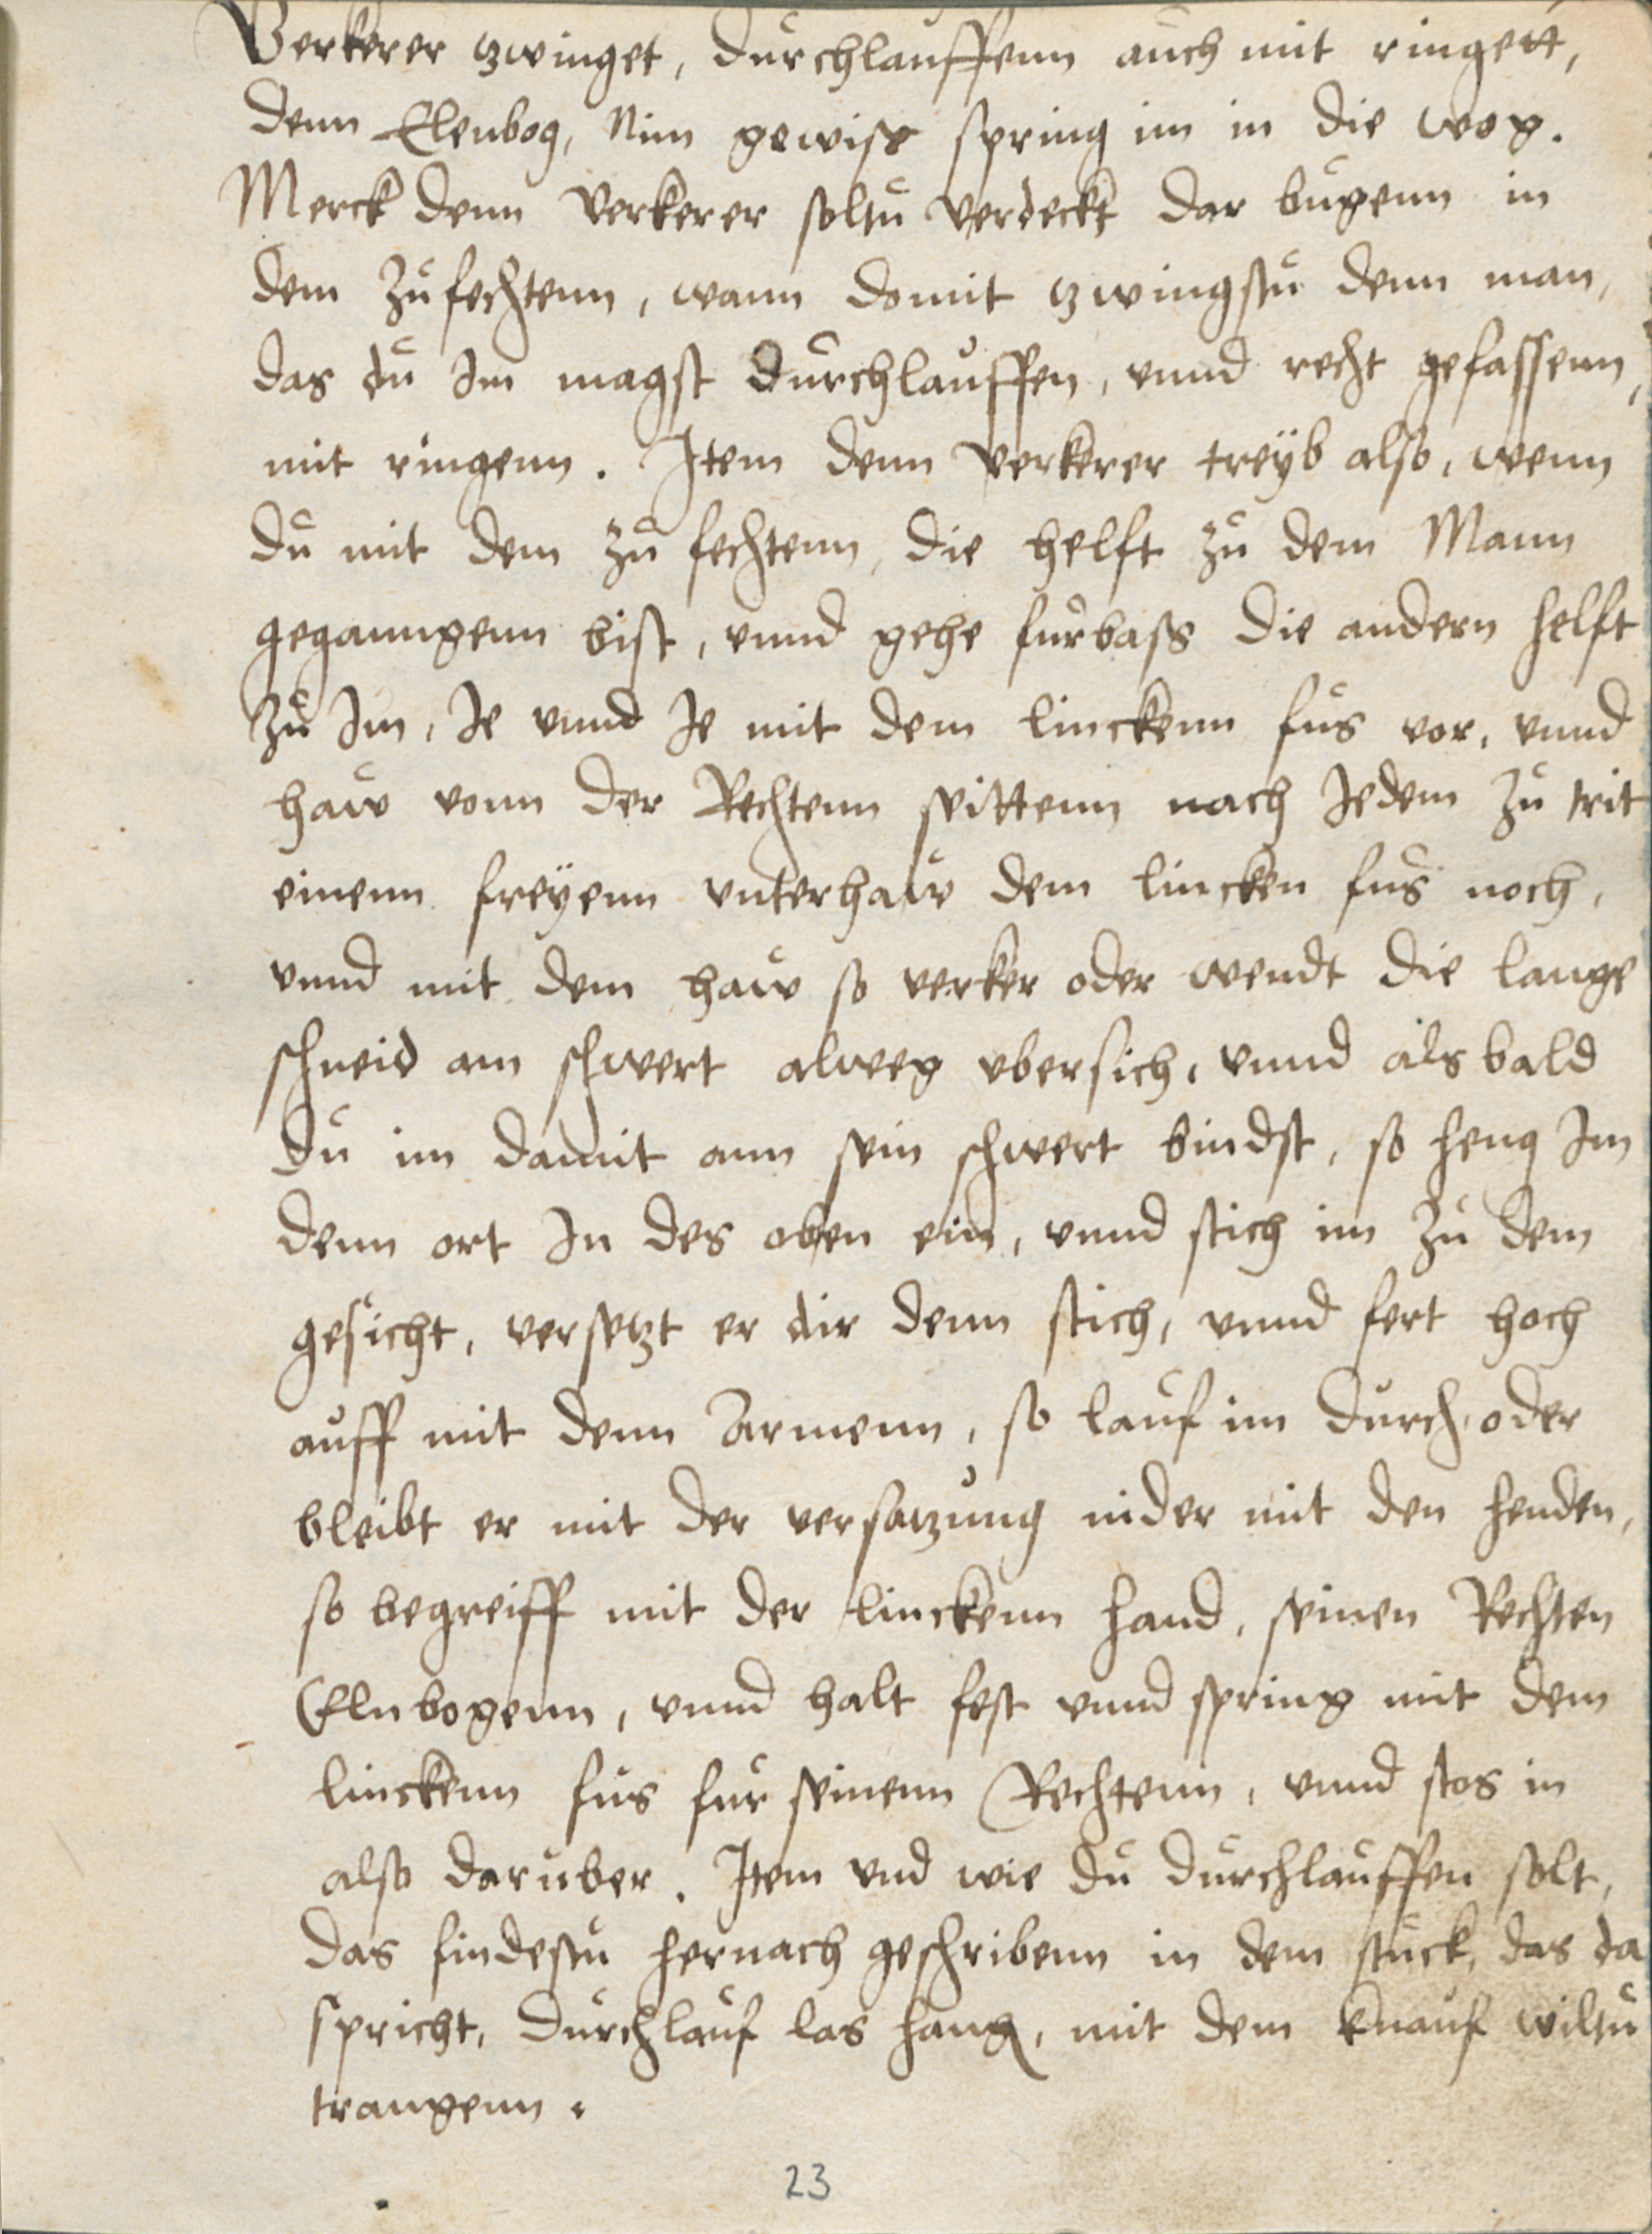 Verkerer zwinget, durchlauffenn auch mit ringett,
denn Elenbog, Nim gewiss spring im in die wog.
Merck denn Verkerer soltu verdeckt dar bugenn in
dem zufechtenn, wann domit zwingstu denn man,
das du Im magst durchlauffen, vnnd recht gefassenn,
mit ringenn. Item denn Verkerer treÿb also, wenn
du mit dem zu fechtenn, die helft zu dem Mann
geganngenn bist, vnnd gehe furbass die andern helft
zu Im, Ie vnnd Ie mit dem linckenn fus vor, vnnd
haw vonn der Rechtenn seittenn nach Iedem zu trit
einenn freÿenn vnterhaw dem lincken fus noch,
vnnd mit dem haw so verker oder wendt die lange
schneid am schwert alweg vbersich, vnnd als bald
du im damit ann sein schwert bindst, so heng Im
denn ort In des oben ein, vnnd stich im zu dem
gesicht, versetzt er dir denn stich, vnnd fert hoch
auff mit denn Armenn, so lauf im durch, oder
bleibt er mit der versatzung nider mit den henden,
so begreiff mit der linckenn hand, seinen Rechten
Elnbogenn, vnnd halt fest vnnd spring mit dem
linckenn fus fur seinenn Rechtenn, vnnd stos in
also daruber. Item vnd wie du durchlauffen solt,
das findestu hernach geschribenn in dem stuck, das da
spricht, durchlauf las hang, mit dem knauf wiltu
trangenn.
23